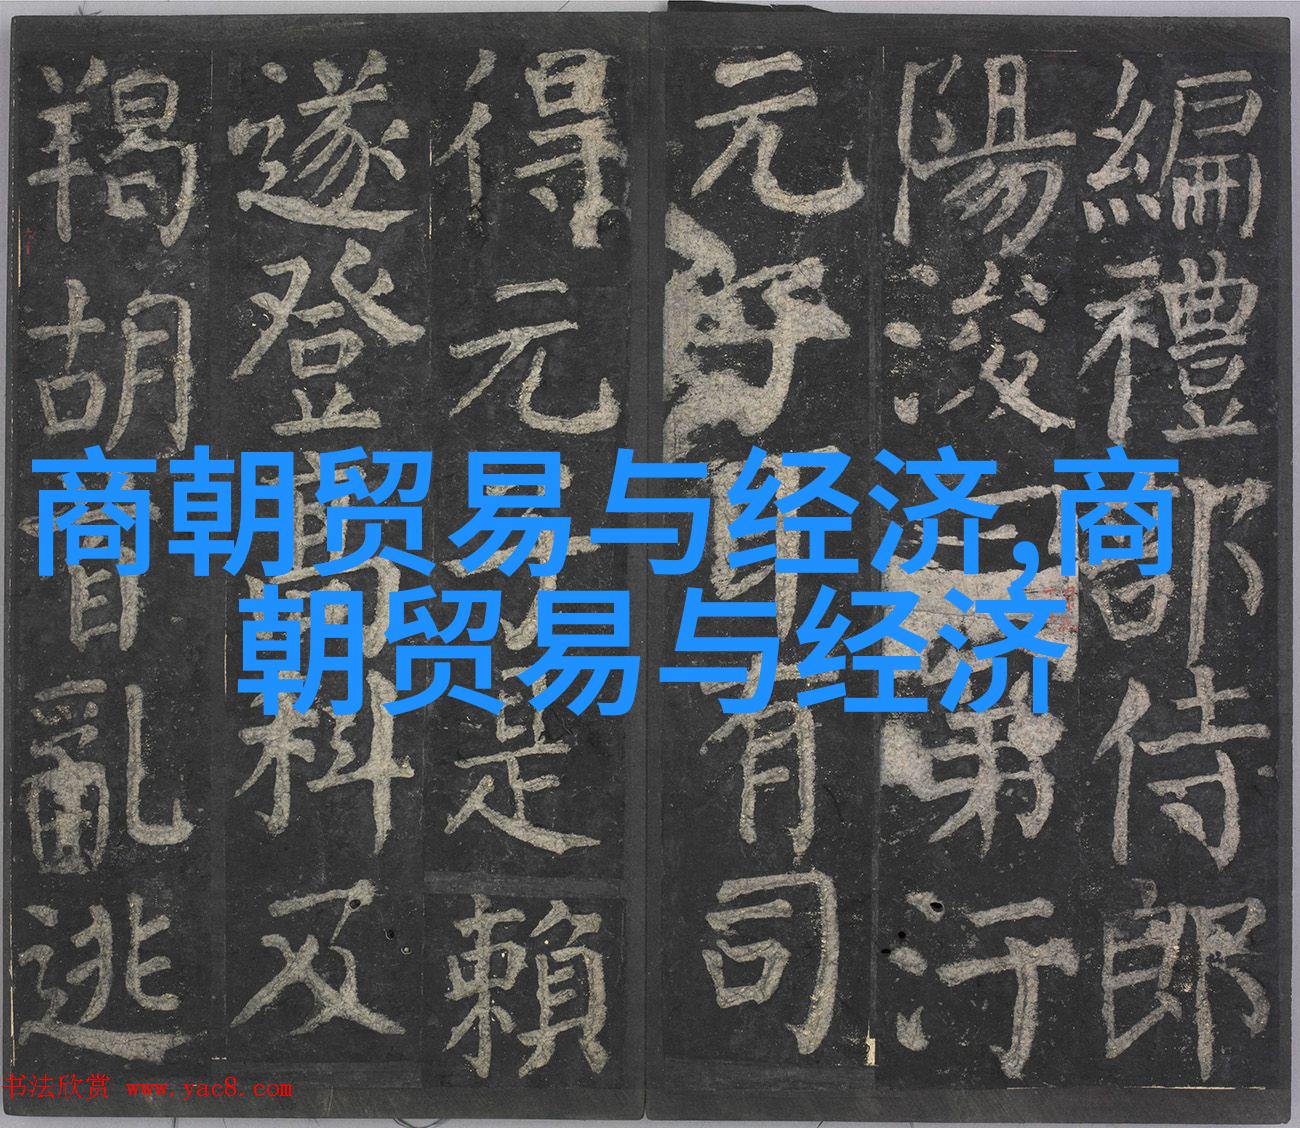 編禮部侍郎
陽浚一第汙
元子耳有司
得元子是賴
遂登高科及
羯胡首亂逃
商朝贸易与经济,商
朝贸易与经济
书法欣赏 www.yac8.com